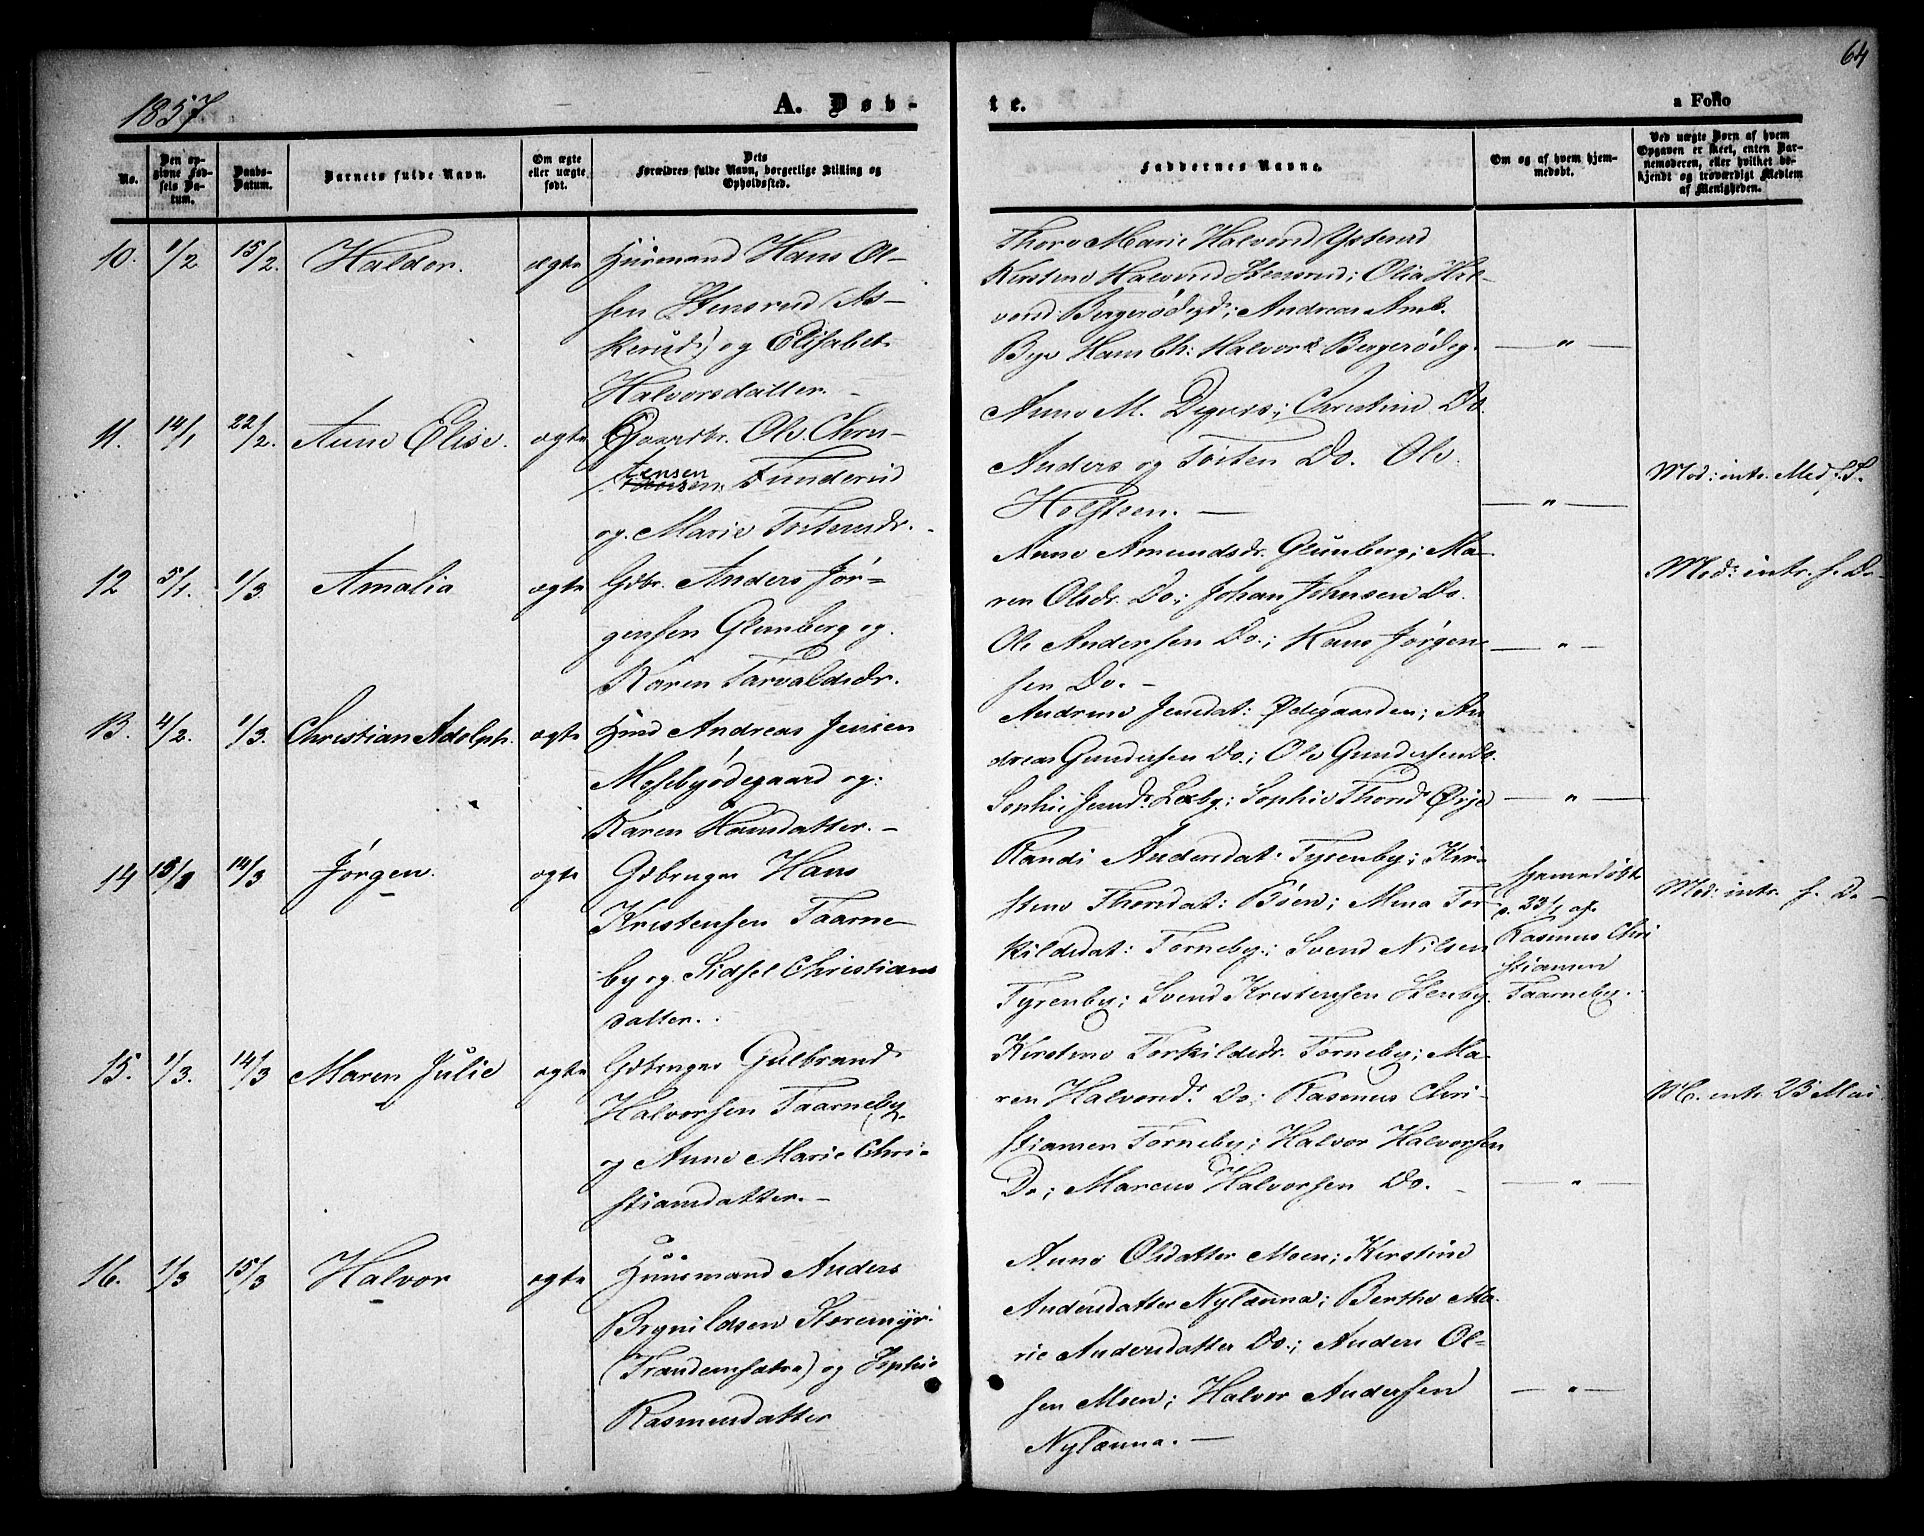 64
1857
A. Døb-
te.
a Folio
No.
Den op-
givne Fød-
sels Da-
tum.
Daabs-
Datum.
Barnets fulde Navn.
Om ægte
eller uægte
født.
Dets
Forældres fulde Navn, borgerlige Stilling og
Opholdssted.
Faddernes Navne.
Om og af hvem hjem-
medøbt.
Ved uægte Børn af hvem
Opgaven er skeet, enten Bar-
nemoderen, eller hvilket be-
kjendt og troværdigt Medlem
af Menigheden.
10. 1/2 15/2. Haldor. ægte Huusmand Hans Ol-
sen Stensrud (As-
kerud) og Elisabet
Halvorsdatter. -
Thore Marie Halvorsd Ysterud
Kirstine Halvorsd Stensrud; Olia Hal-
vorsd: Bergerødegd; Andreas Amb.
Bye Hans Ch: Halvors Bergerødeg.
— " —
11. 14/1 22/2. Anne Elise. ægte Gaardbr. Ole Chris-
tensen Funderud
og Marie Tostensdr. -
Anne M. Degnes; Christine Do.
Anders og Tosten Do. Ole
Holsteen. —
— " —
Mod: intr. Med f. S.
12 5/1. 1/3. Amalia ægte Gdbr. Anders Jør-
gensen Glenberg og
Karen Tarvaldsdr.
Anne Amundsdr. Glenberg; Ma-
ren Olsdr. Do.; Johan Johnsen Do.
Ole Andersen Do.; Hans Jørgen-
sen Do. -
— " —
Mod: intr. f. Do-
13. 4/2. 1/3. Christian Adolph. ægte Husm Andreas Jensen
Mosebyødegaard og
Karen Hansdatter. -
Andrine Jensdat: Ødegaarden; An
dreas Gundersen Do.; Ole Gundersen Do.
Sophie Jensd. Lexby; Sophie Thorsd Ørje
— " —
14 18/1 14/3 Jørgen. ægte Gdbruger Hans
Kristensen Taarne-
by og Sidsel Christians
datter.
Randi Andersdat: Tyrenby; Kir-
stine Thorsdat: Böen; Mina Tor-
kildsdat: Torneby; Svend Nilsen
Tyrenby; Svend Kristensen Stenby
hjemmedøbt
d. 23/1 af
Rasmus Chri
stiansen
Taarneby.
Mod: intr. f. Do-
15. 1/3. 14/3 Maren Julie ægte Gdbruger Gulbrand
Halvorsen Taarneby
og Anne Marie Chri-
stiansdatter. -
Kirstine Torkildsdr. Torneby; Ma-
ren Halvorsd. Do; Rasmus Chri-
stiansen Torneby; Halvor Halvorsen
Do; Marcus Halvorsen Do. -
— " —
M. intr. 23 Mai
16. 1/3 15/3 Halvor ægte Huusmand Anders
Brynildsen Storemyr
(Trandemsætre) og Sophie
Rasmusdatter
Anne Olsdatter Moen; Kirstine
Andersdatter Nylænna; Berthe Ma-
rie Andersdatter Do.; Anders Ol-
sen Moen; Halvor Andersen
Nylænna. —
— " —